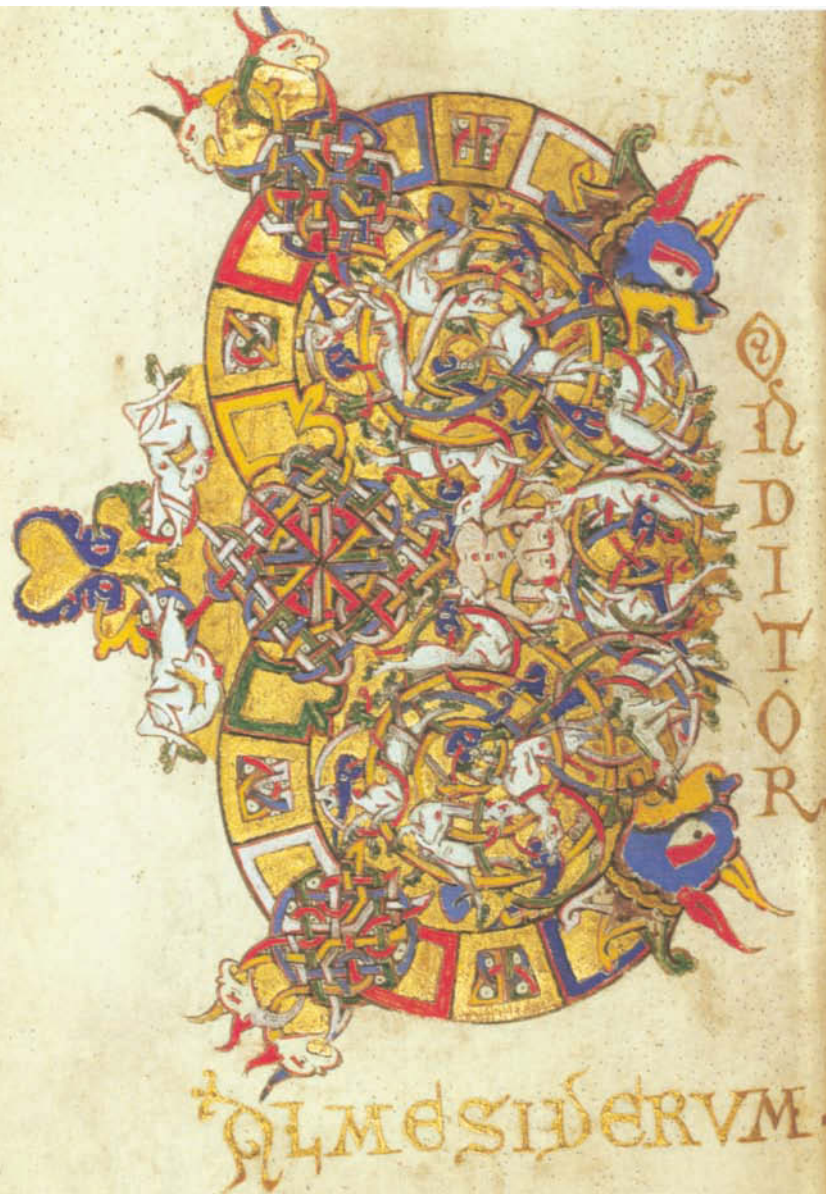 CONDITOR
ALMESIDERVM.